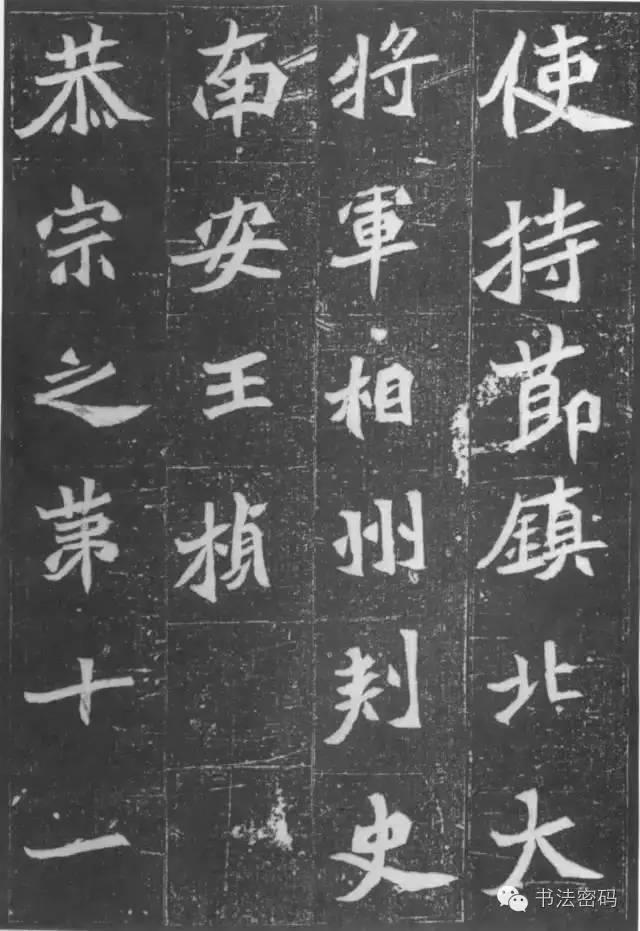 使持節鎮北大
將軍相州刾史
南安王楨
恭宗之苐十一
书法密码